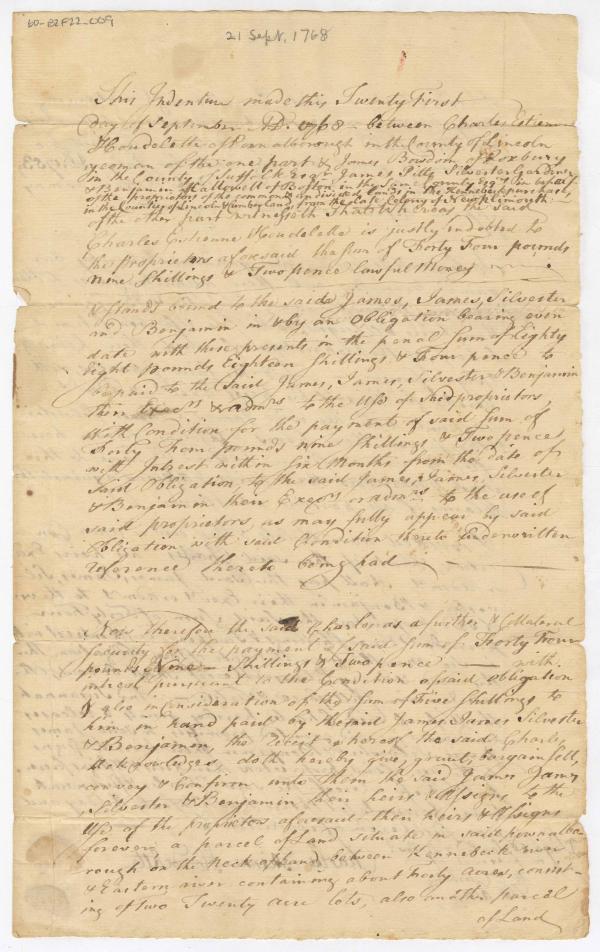 60-B2F22-009
21 Sept, 1768
This Indenture made this Twenty First
day of September AD: 1768 between Charles Estienne
Houdelette of Pownalborough in the County of Lincoln
yeoman of the one part & James Bowdoin of Roxbury
in the County of Suffolk Esqr James Pitts Silvester Gardiner
& Benjamin Hallowell of Boston in the same County Esqrs in behalf
of the proprietors of the common & undivided Lands in the Kennebeck purchase
in the Counties of Lincoln & Cumberland from the late Colony of New plymouth
of the other part witnesseth That Whereas, the said
Charles Estienne Houdelette is justly indebted to
the Proprietors aforesaid the sum of Forty Four pounds
nine Shillings & Two pence lawful Money
& stands bound to the said James, James, Silvester
and Benjamin in & by an Obligation bearing even
date with these presents in the penal Sum of Eighty
Eight pounds Eighteen Shillings & Four pence to
be paid to the Said James, James, Silvester & Benjamin
their Execrs & admrs to the Use of Said proprietors,
With Condition for the payment of said Sum of
Forty Four pounds nine Shillings & Two pence
with Intrest within Six Months from the Date of
Said Obligation, to the said James, James, Silvester
& Benjamin their Execrs or admrs to the use of
said proprietors, as may fully appear by said
Obligation with said Condition thereto underwritten
reference thereto being had
Now therefore the said Charles as a further & Collateral
security for the payment of said sum of Forty Four
pounds Nine Shillings & Two pence with
intrest pursuant to the Condition of said Obligation
& also in Consideration of the Sum of Five Shillings to
him in hand paid by the said James James Silvester
& Benjamin, the receit whereof the said Charles
acknowledges, doth hereby give, grant, bargain sell,
convey & Confirm unto them the said James James
Silvester & Benjamin their heirs & Assigns to the
Use of the proprietors aforesaid their heirs & Assigns
forever a parcel of Land situate in said pownalbo
rough on the Neck of Land between Kennebeck river
& Eastern river containing about forty Acres, consist-
ing of two Twenty acre lots, also another parcel
of Land